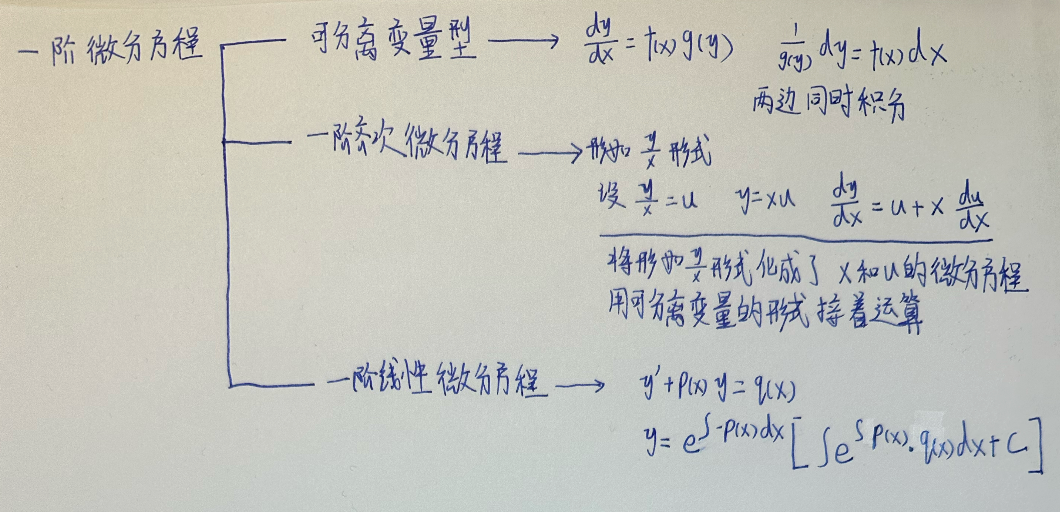 一阶微分方程
可分离变量型 → dy/dx = f(x)g(y) 1/g(y) dy = f(x)dx
两边同时积分
一阶齐次微分方程 → 形如 y/x 形式
设 y/x = u y=xu dy/dx = u + x du/dx
将形如 y/x 形式化成了 x和u的微分方程
用可分离变量的形式接着运算
一阶线性微分方程 → y'+p(x)y=q(x)
y= e^∫-p(x)dx [∫e^∫p(x)·q(x)dx+C]